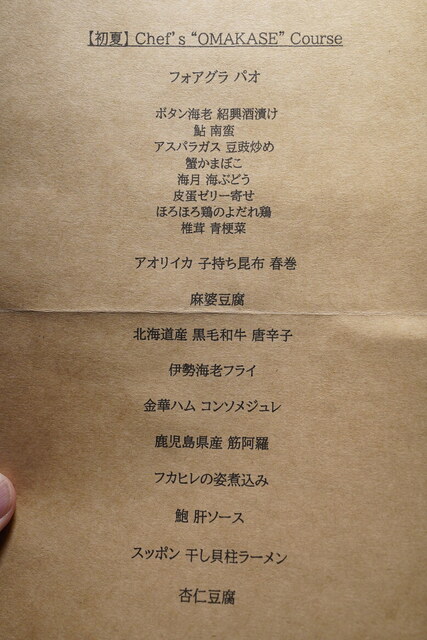 【初夏】Chef's "OMAKASE" Course
フォアグラ パオ
ボタン海老 紹興酒漬け
鮎 南蛮
アスパラガス 豆豉炒め
蟹かまぼこ
海月 海ぶどう
皮蛋ゼリー寄せ
ほろほろ鶏のよだれ鶏
椎茸 青梗菜
アオリイカ 子持ち昆布 春巻
麻婆豆腐
北海道産 黒毛和牛 唐辛子
伊勢海老フライ
金華ハム コンソメジュレ
鹿児島県産 筋阿羅
フカヒレの姿煮込み
鮑 肝ソース
スッポン 干し貝柱ラーメン
杏仁豆腐